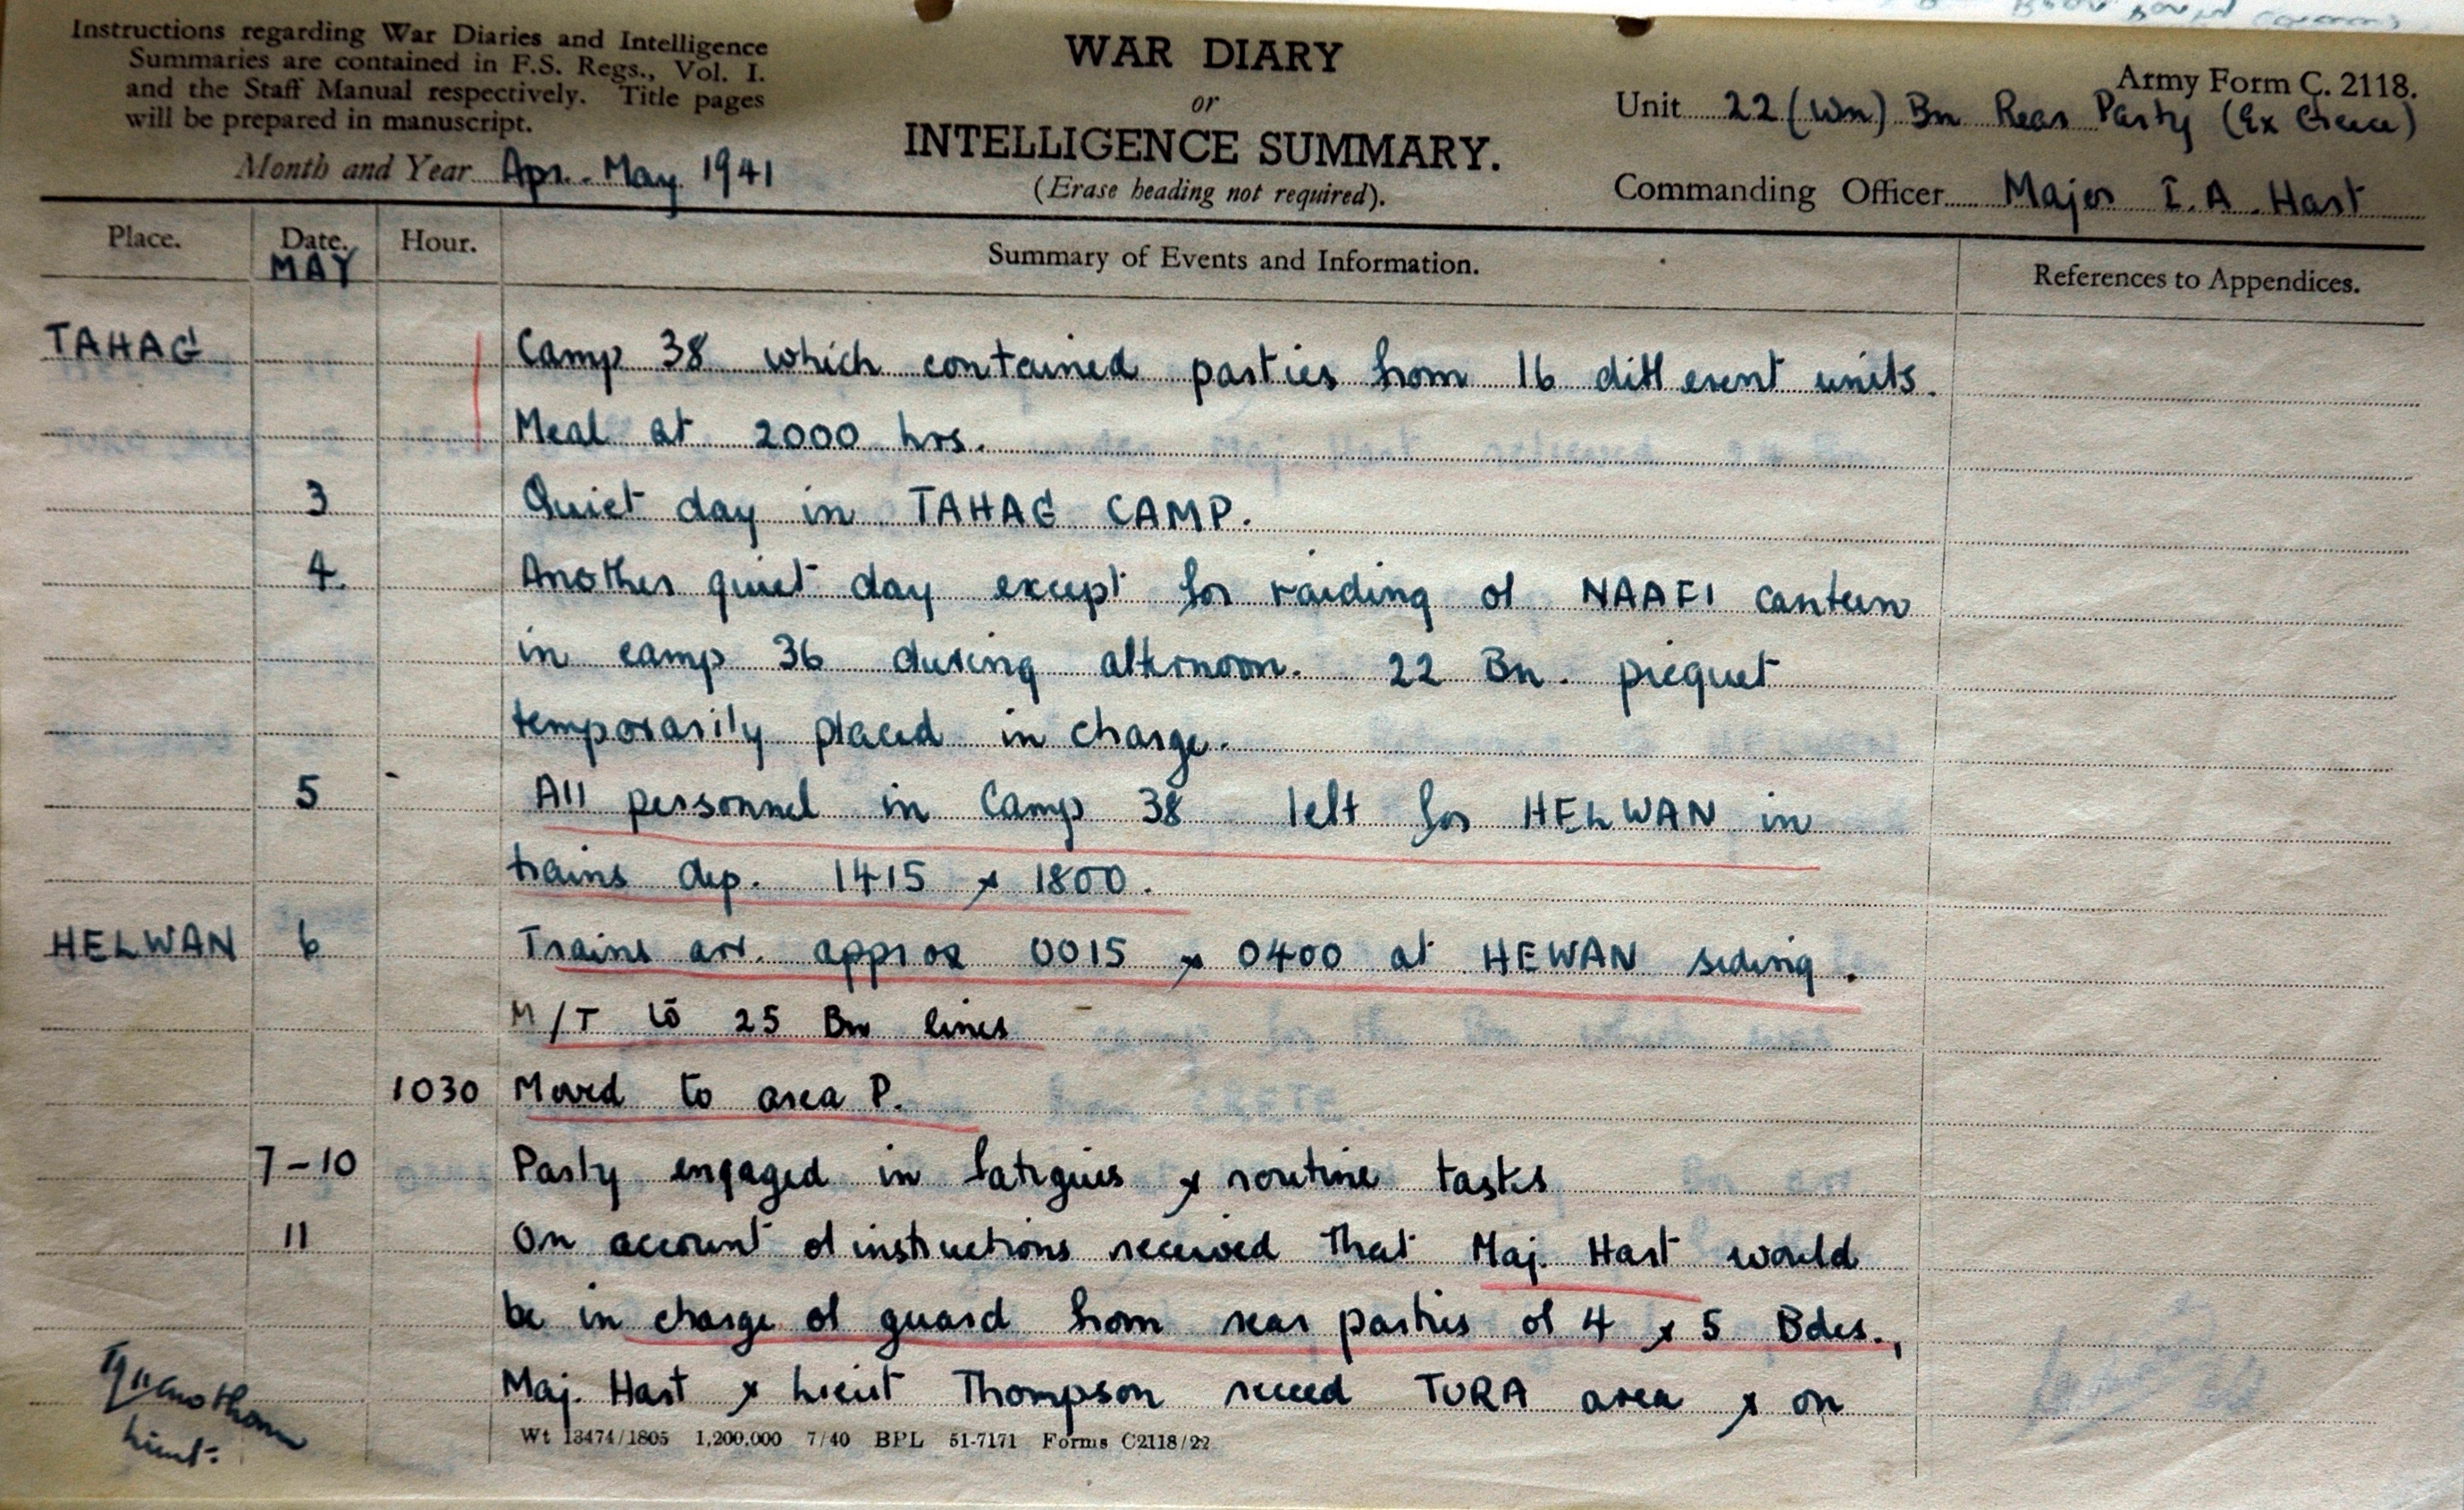 Instructions regarding War Diaries and Intelligence
Summaries are contained in F.S. Regs., Vol. I.
and the Staff Manual respectively. Title pages
will be prepared in manuscript.
Month and Year Apr. - May 1941
WAR DIARY
or
INTELLIGENCE SUMMARY.
(Erase heading not required).
Army Form C. 2118.
Unit 22 (Wn) Bn Rear Party (Ex Greece)
Commanding Officer Major I. A. Hart
Place. Date. Hour. Summary of Events and Information. References to Appendices.
MAY
TAHAG Camp 38 which contained parties from 16 different units.
Meal at 2000 hrs.
3 Quiet day in TAHAG CAMP.
4 Another quiet day except for raiding of NAAFI canteen
in camp 36 during afternoon. 22 Bn. piequet
temporarily placed in charge.
5 All personnel in Camp 38 left for HELWAN in
trains dep. 1415 & 1800.
HELWAN 6 Trains arr. approx 0015 & 0400 at HEWAN siding.
M/T to 25 Bn lines
1030 Moved to area P.
7-10 Party engaged in fatigues & routine tasks
11 On account of instructions received that Maj. Hart would
be in charge of guard from rear parties of 4 & 5 Bdes.,
Maj. Hart & Lieut Thompson recced TURA area & on
Lieut.
Wt 13474/1805 1,200,000 7/40 BPL 51-7171 Forms C2118/22